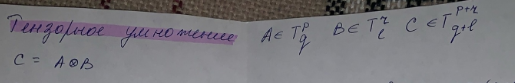 Тензорное умножение A ∈ T^p_q B ∈ T^r_l C ∈ T^{p+r}_{q+l}
C = A⊗B